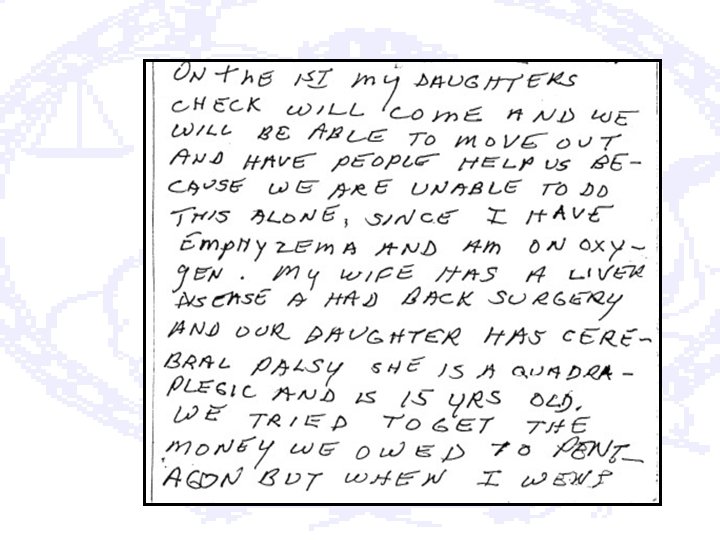 ON the 1ST my DAUGHTERS
CHECK WILL COME AND WE
WILL BE ABLE TO MOVE OUT
AND HAVE PEOPLE HELP US BE-
CAUSE WE ARE UNABLE TO DO
THIS ALONE, SINCE I HAVE
EMPHYZEMA AND AM ON OXY-
GEN. MY WIFE HAS A LIVER
DISEASE A HAD BACK SURGERY
AND OUR DAUGHTER HAS CERE-
BRAL PALSY SHE IS A QUADRA-
PLEGIC AND IS 15 YRS OLD.
WE TRIED TO GET THE
MONEY WE OWED TO PENT-
AGON BUT WHEN I WENT